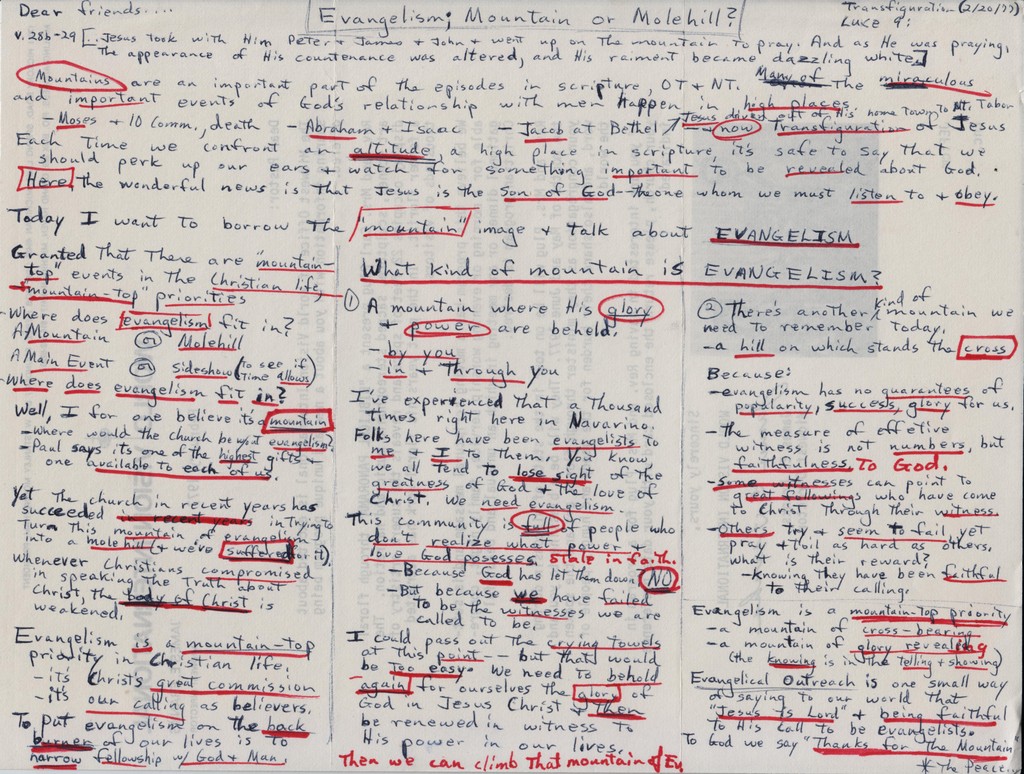 Dear friends....
Evangelism; Mountain or Molehill?
Transfiguration (2/20/77)
LUKE 9:
v. 28b-29 [.. Jesus took with Him Peter + James + John + went up on the mountain to pray. And as He was praying,
the appearance of His countenance was altered, and His raiment became dazzling white]
Mountains are an important part of the episodes in scripture, OT + NT. Many of the miraculous
and important events of God's relationship with men happen in high places
Jesus doved out of His home town to Mt. Tabor
- Moses + 10 Comm., death - Abraham + Isaac - Jacob at Bethel - now Transfiguration of Jesus
Each Time we confront an altitude, a high place in scripture, it's safe to say that we
should perk up our ears + watch for something important to be revealed about God.
Here the wonderful news is that Jesus is the Son of God - the one whom we must listen to + obey.
Today I want to borrow the "mountain" image + talk about EVANGELISM
Granted That There are "mountain-
top" events in the Christian life,
"mountain-top" priorities
- Where does evangelism fit in?
A Mountain or Molehill
A Main Event or Sideshow (to see if
time allows)
- Where does evangelism fit in?
Well, I for one believe it's a mountain
- Where would the church be w/out evangelism?
- Paul says its one of the highest gifts +
one available to each of us.
Yet the church in recent years has
succeeded in recent years in Trying to
Turn this mountain of evangelism
into a molehill (+ we've suffered for it)
Whenever Christians compromised
in speaking the Truth about
Christ, the body of Christ is
weakened.
Evangelism is a mountain-top
priority in Christian life.
- it's Christs great commission
- it's our calling as believers.
To put evangelism on the back
burner of our lives is to
narrow fellowship w/ God + Man.
What kind of mountain is EVANGELISM?
① A mountain where His glory
+ power are beheld.
- by you
- in + Through you
I've experienced that a Thousand
times right here in Navarino.
Folks here have been evangelists to
me + I to Them. You know
we all tend to lose sight of the
greatness of God + the love of
Christ. We need evangelism
This community full of people who
don't realize what power +
love God posesses. stale in faith.
- Because God has let them down NO
- But because we have failed
To be the witnesses we are
called to be.
I could pass out the crying towels
at this point -- but that would
be Too easy. We need to behold
again for ourselves the glory of
God in Jesus Christ + Then
be renewed in witness to
His power in our lives.
Then we can climb That mountain of Ev.
② There's another kind of mountain we
need To remember Today.
- a hill on which stands the cross
Because:
- evangelism has no guarantees of
popularity, success, glory for us.
- the measure of effetive
witness is not numbers, but
faithfulness To God.
- Some witnesses can point to
great followings who have come
to Christ Through their witness.
- others try + seem to fail, yet
pray + toil as hard as others.
what is their reward?
- knowing They have been faithful
to Their calling.
Evangelism is a mountain-top priority
- a mountain of cross-bearing
- a mountain of glory revealing
(the knowing is in the telling + showing)
Evangelical Outreach is one small way
of saying to our world that
"Jesus Is Lord" + being faithful
to His call to be evangelists.
To God we say "Thanks for The Mountain
* The Peace